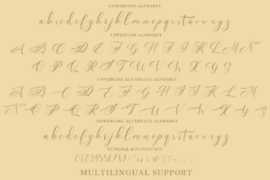 LOWERCASE ALPHABET
abcdefghijklmnopqrstuvwxyz
UPPERCASE ALPHABET
A B C D E F G H I J K L M N
O P Q R S T U V W X Y Z
UPPERCASE ALTERNATE ALPHABET
A B C D E F G H I J K L M
N O P Q R S T U V W X Y Z
LOWERCASE ALTERNATE ALPHABET
abcdefghijklmnopqrstuvwxyz
NUMERAL & PUNCUATION
0123456789
MULTILINGUAL SUPPORT